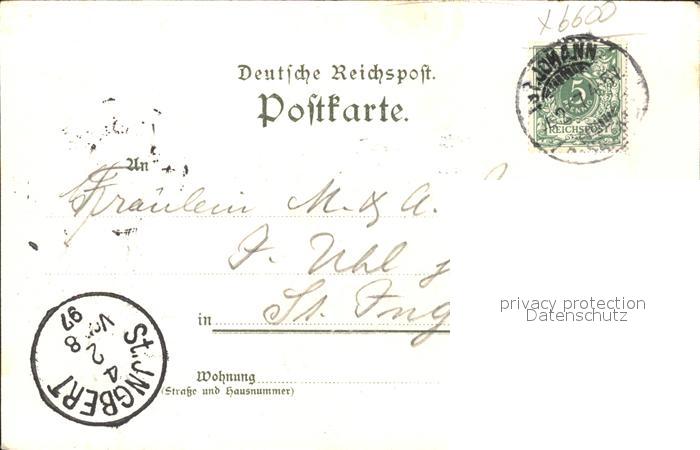 x6600
Deutsche Reichspost.
Postkarte.
ST. JOHANN
5
REICHSPOST
An
Fräulein M. & A.
F. Uhl
in St. Ing
privacy protection
Datenschutz
St. JNGBERT
4
2 8
Vor
97
Wohnung
(Straße und Hausnummer)